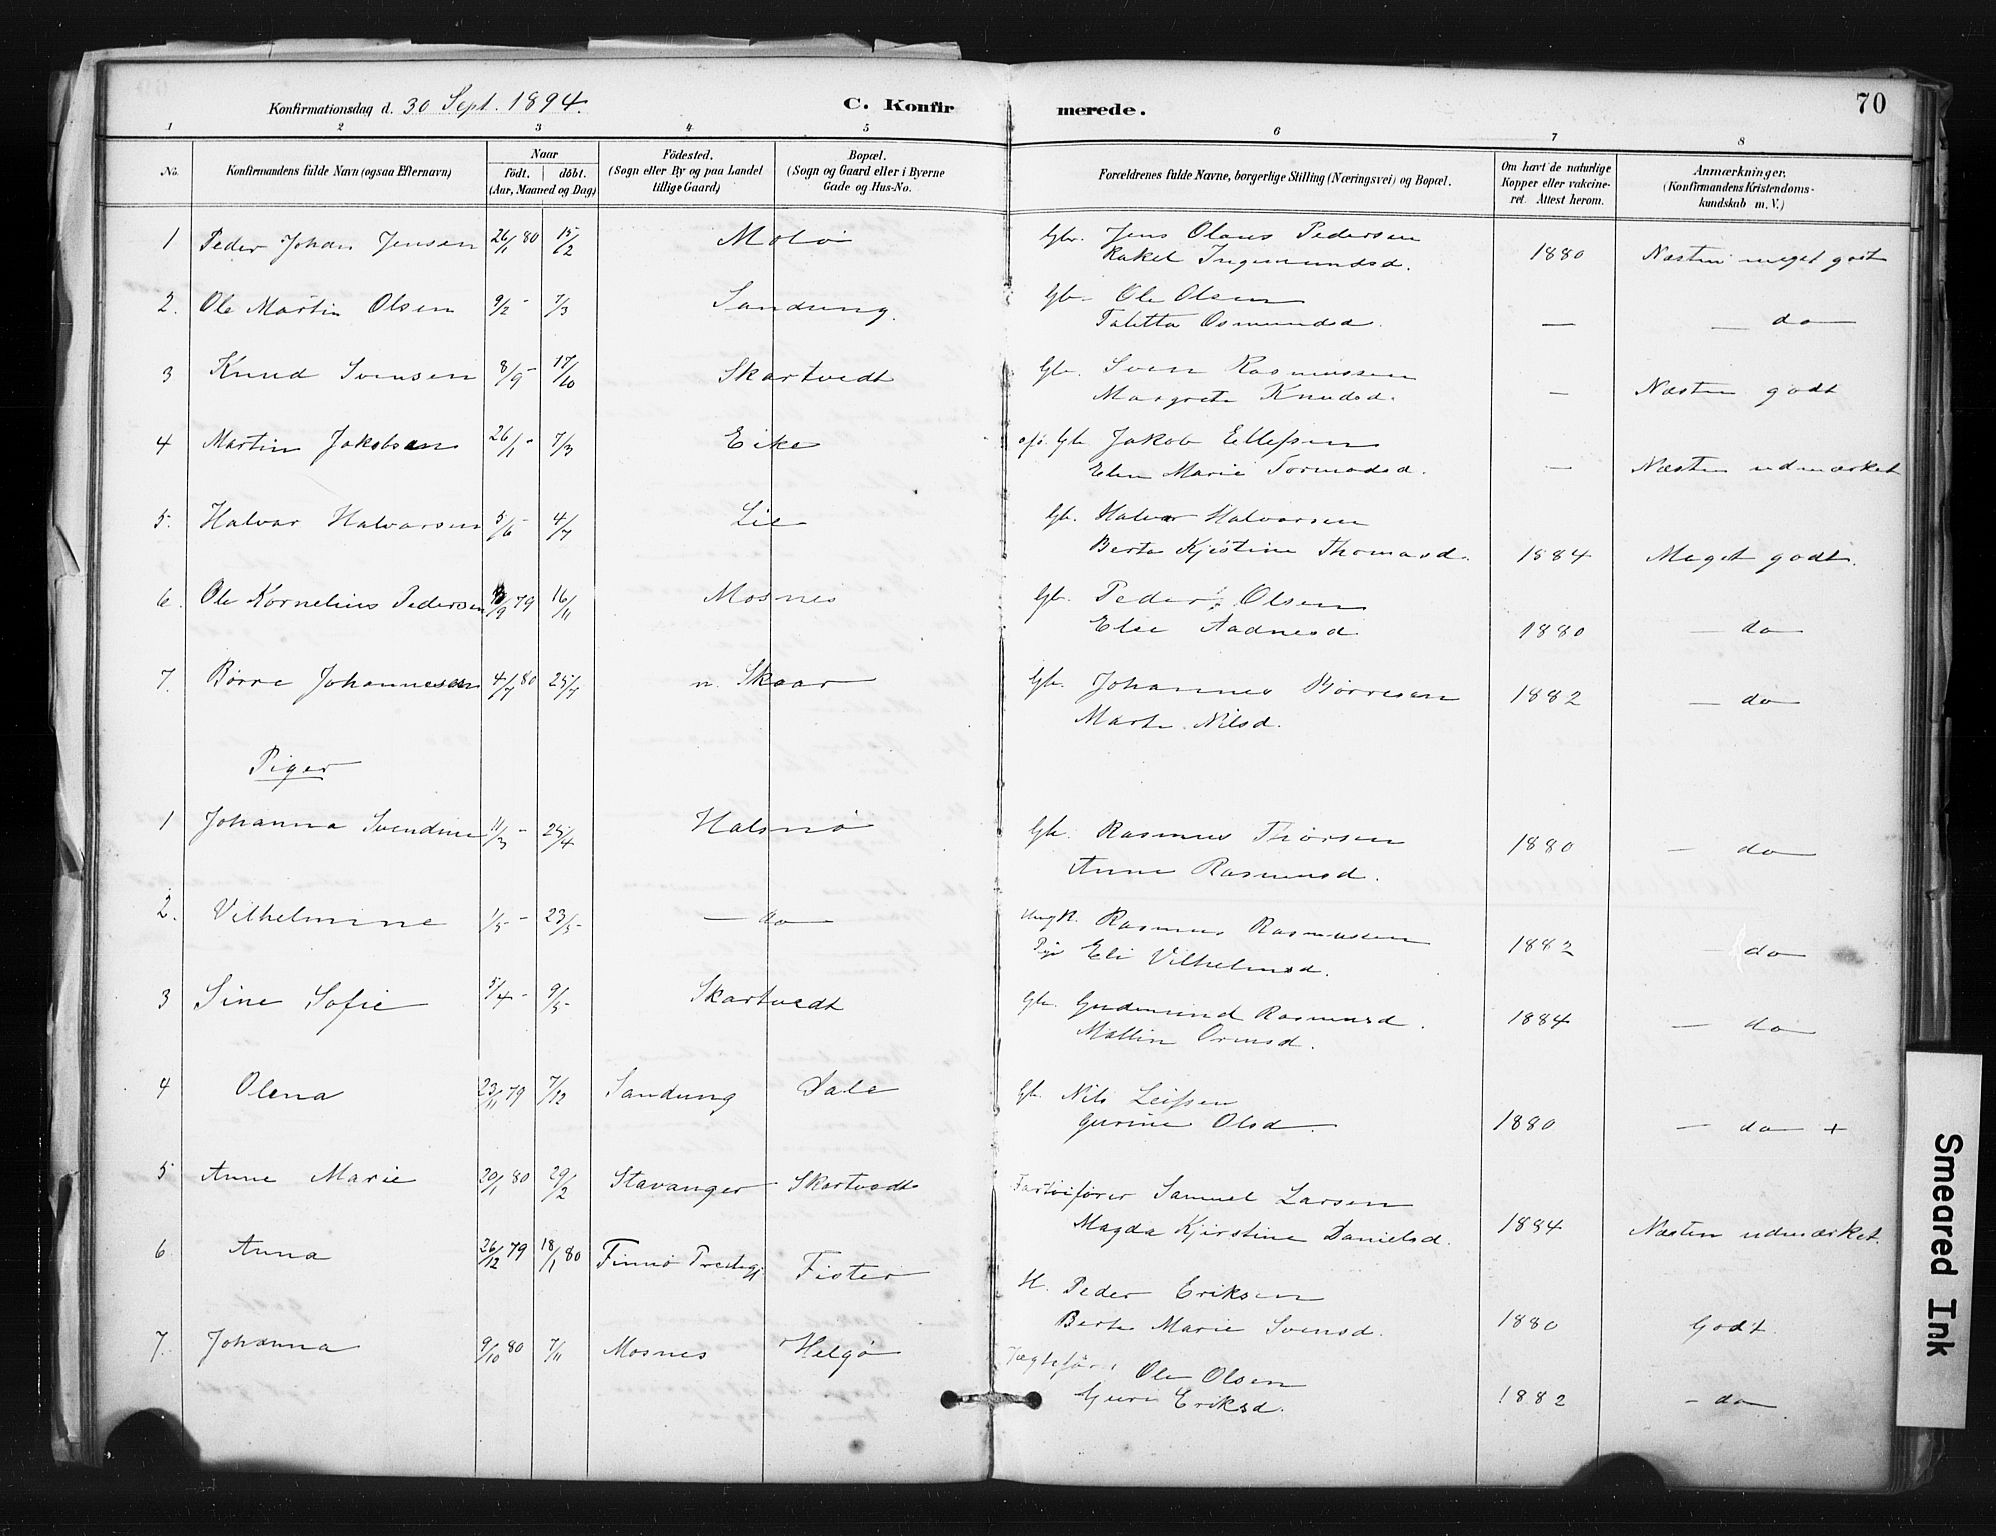 Konfirmationsdag d. 30 Sept. 1894.
C. Konfirmerede.
70
1 2 3 4 5 6 7 8
No. Konfirmandens fulde Navn (ogsaa Efternavn) Naar født. døbt. (Aar, Maaned og Dag) Fødested. (Sogn eller By og paa Landet tillige Gaard) Bopæl. (Sogn og Gaard eller i Byerne Gade og Hus-No. Forældrenes fulde Navne, borgerlige Stilling (Næringsvei) og Bopæl. Om havt de naturlige Kopper eller vakcineret. Attest herom. Anmærkninger. (Konfirmandens Kristendomskundskab m. V.)
1 Peder Johan Jensen 26/1 80 15/2 Gbr. Jens Olaus Pedersen
Rakel Ingemundsd. 1880 Næsten meget godt
2. Ole Martin Olsen 9/2 - 7/3 Sandung. Gb. Ole Olsen
Talitta Osmundsd. — — do
3 Knud Svensen 8/9 - 17/10 Skartvedt Gbr. Sven Rasmussen
Margrete Knudsd. — Næsten godt
4 Martin Jakobsen 26/1 - 7/3 Eike Gb. Jakob Ellefsen
Elen Marie Tormodsd. — Næsten udmærket
5. Halvar Halvorsen 5/6 - 4/7 Lie Gb. Halvor Halvorsen
Berte Kjistine Thomasd. 1884 Meget godt.
6. Ole Kornelius Pedersen /9 79 16/11 Mosnes Gb. Peder Olsen
Else Aadnesd 1880 — do
7. Børre Johannesen 4/7 80 25/7 n. Skaar Gb. Johannes Børresen
Marte Nilsd. 1882 — do
Piger
1 Johanna Svendine 11/3 - 25/4 Halsnø Gb. Rasmus Thorsen
Anne Rasmusd. 1880 — do
2. Vilhelmine 1/5 - 23/5 — do — Ungk. Rasmus Rasmussen
Pige Eli Vilhelmsd. 1882 — do
3 Sine Sofie 5/4 - 9/5 Skartvedt Gb. Gudmund Rasmusd.
Mallin Ormsd. 1884 — do
4 Olena 23/11 79 7/12 Sandung Dale Gb. Nils Leifsen
Gurine Olsd. 1880 — do +
5 Anne Marie 20/1 80 29/2 Stavanger Skartvedt Samuel Larsen
Magda Kjirstine Danielsd. 1884 Næsten udmærket.
6 Anna 26/12 79 18/1 80 Finnø Prestegj Fister H. Peder Eriksen
Berte Marie Svensd. 1880 Godt.
7. Johanna 9/10 80 7/11 Mosnes Helgø Jægtefør. Ole Olsen
Guri Eriksd. 1882 — do
Smeared Ink